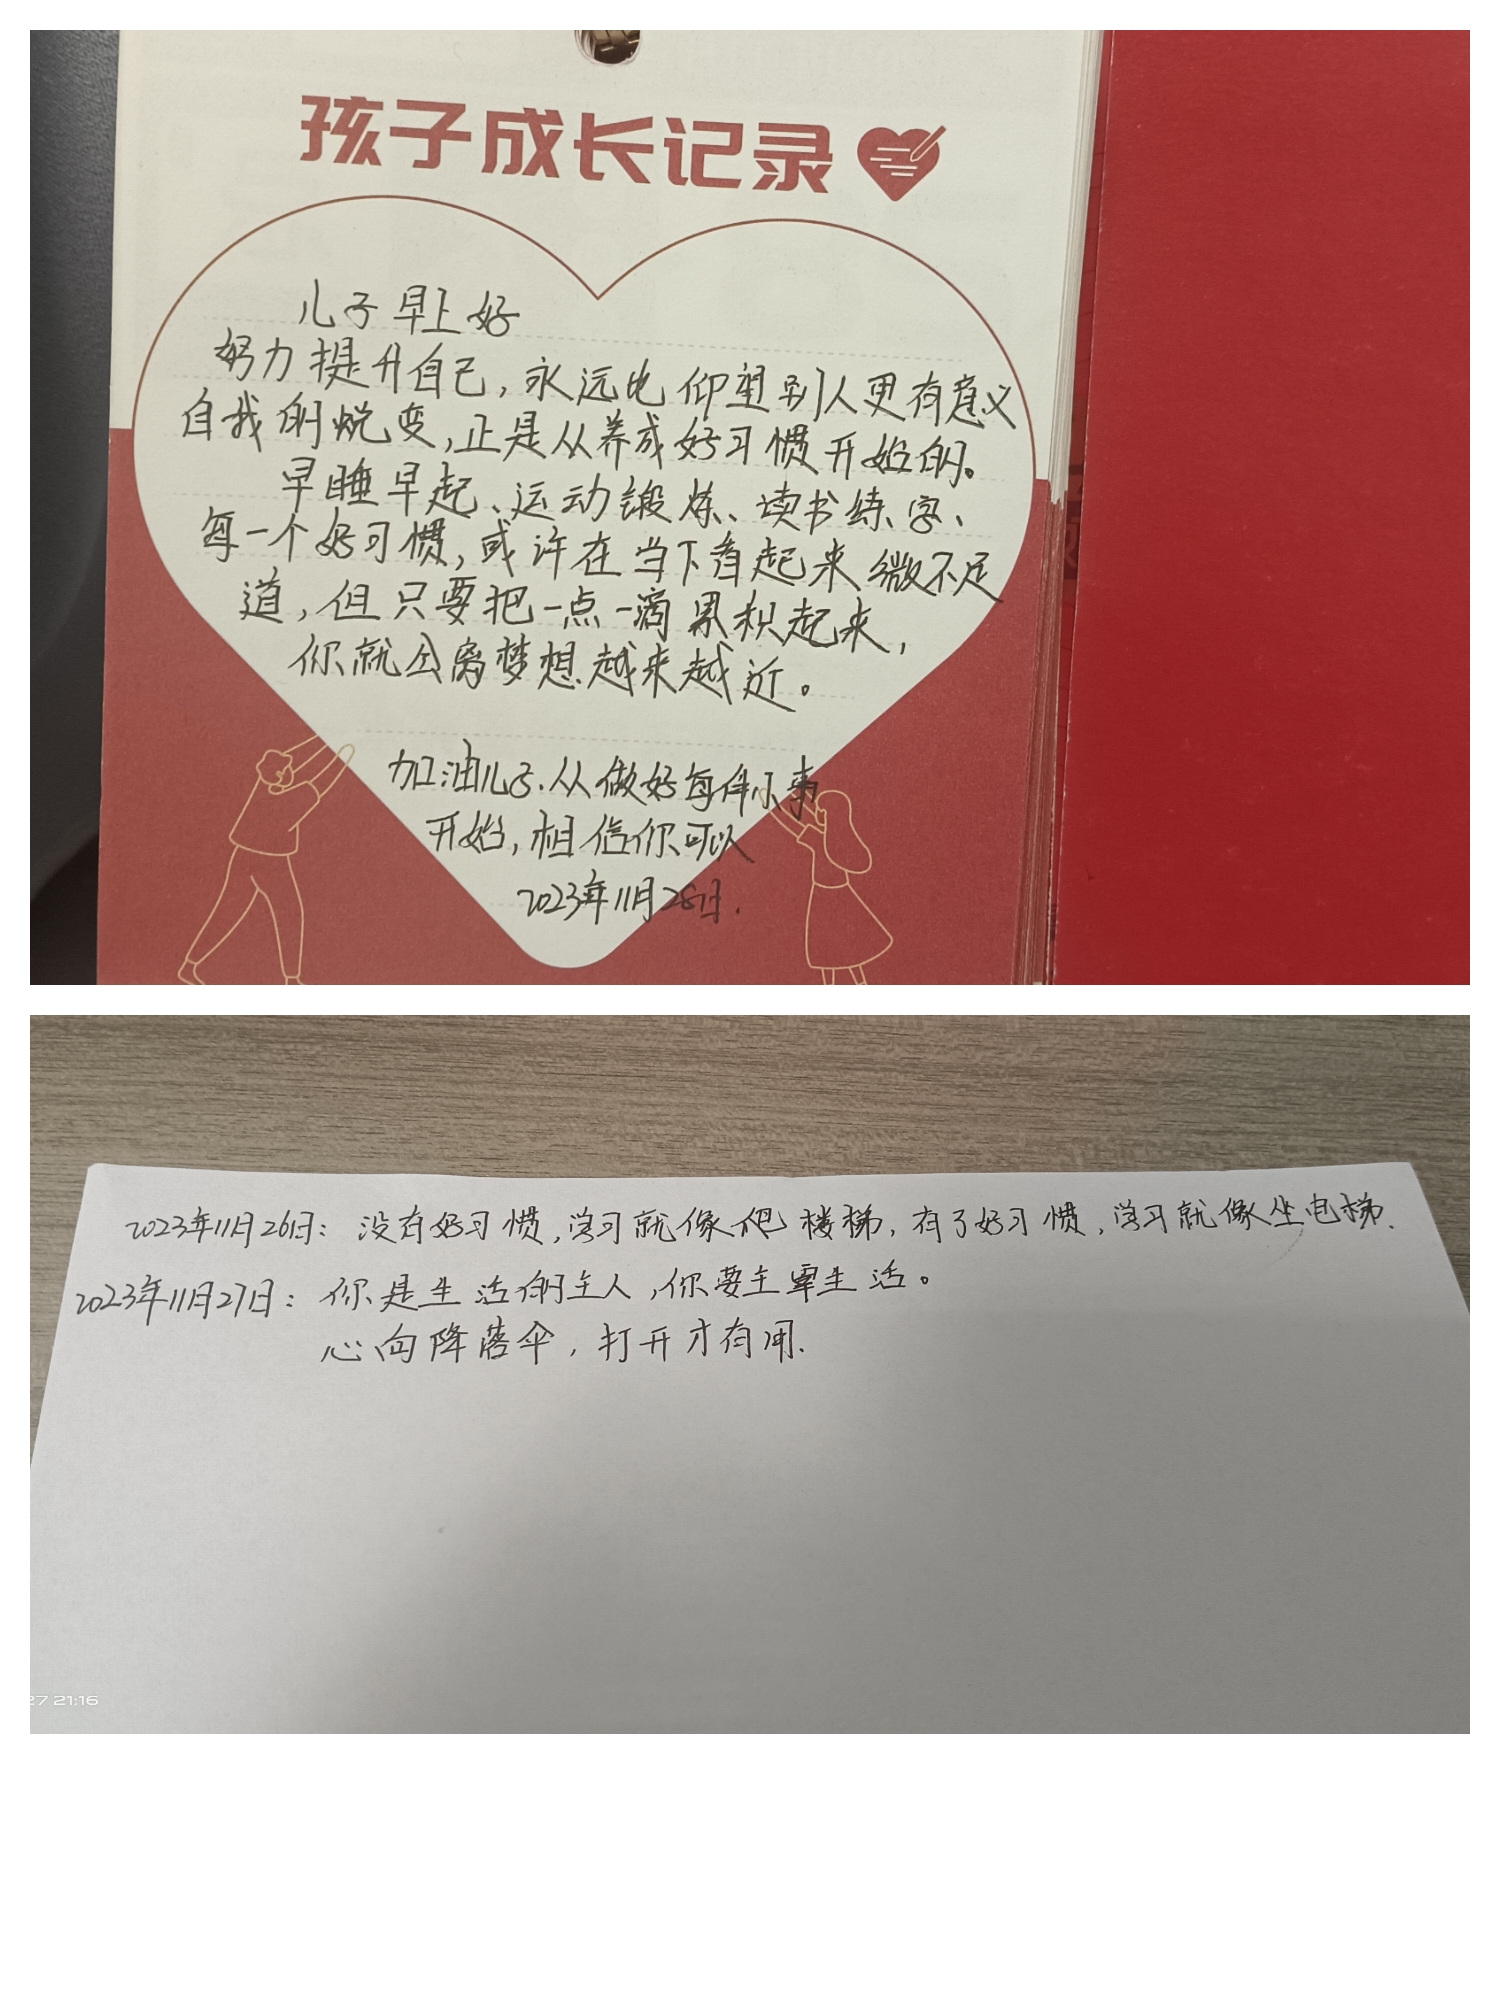 孩子成长记录
儿子早上好
努力提升自己,永远比仰望别人更有意义
自我的蜕变,正是从养成好习惯开始的。
早睡早起、运动锻炼、读书练字、
每一个好习惯,或许在当下看起来微不足
道,但只要把一点一滴累积起来,
你就会离梦想越来越近。
加油儿子.从做好每件小事
开始,相信你可以
2023年11月28日.
2023年11月26日:没有好习惯,学习就像爬楼梯,有了好习惯,学习就像坐电梯.
2023年11月27日:你是生活的主人,你要主宰生活。
心向降落伞,打开才有用.
27 21:16